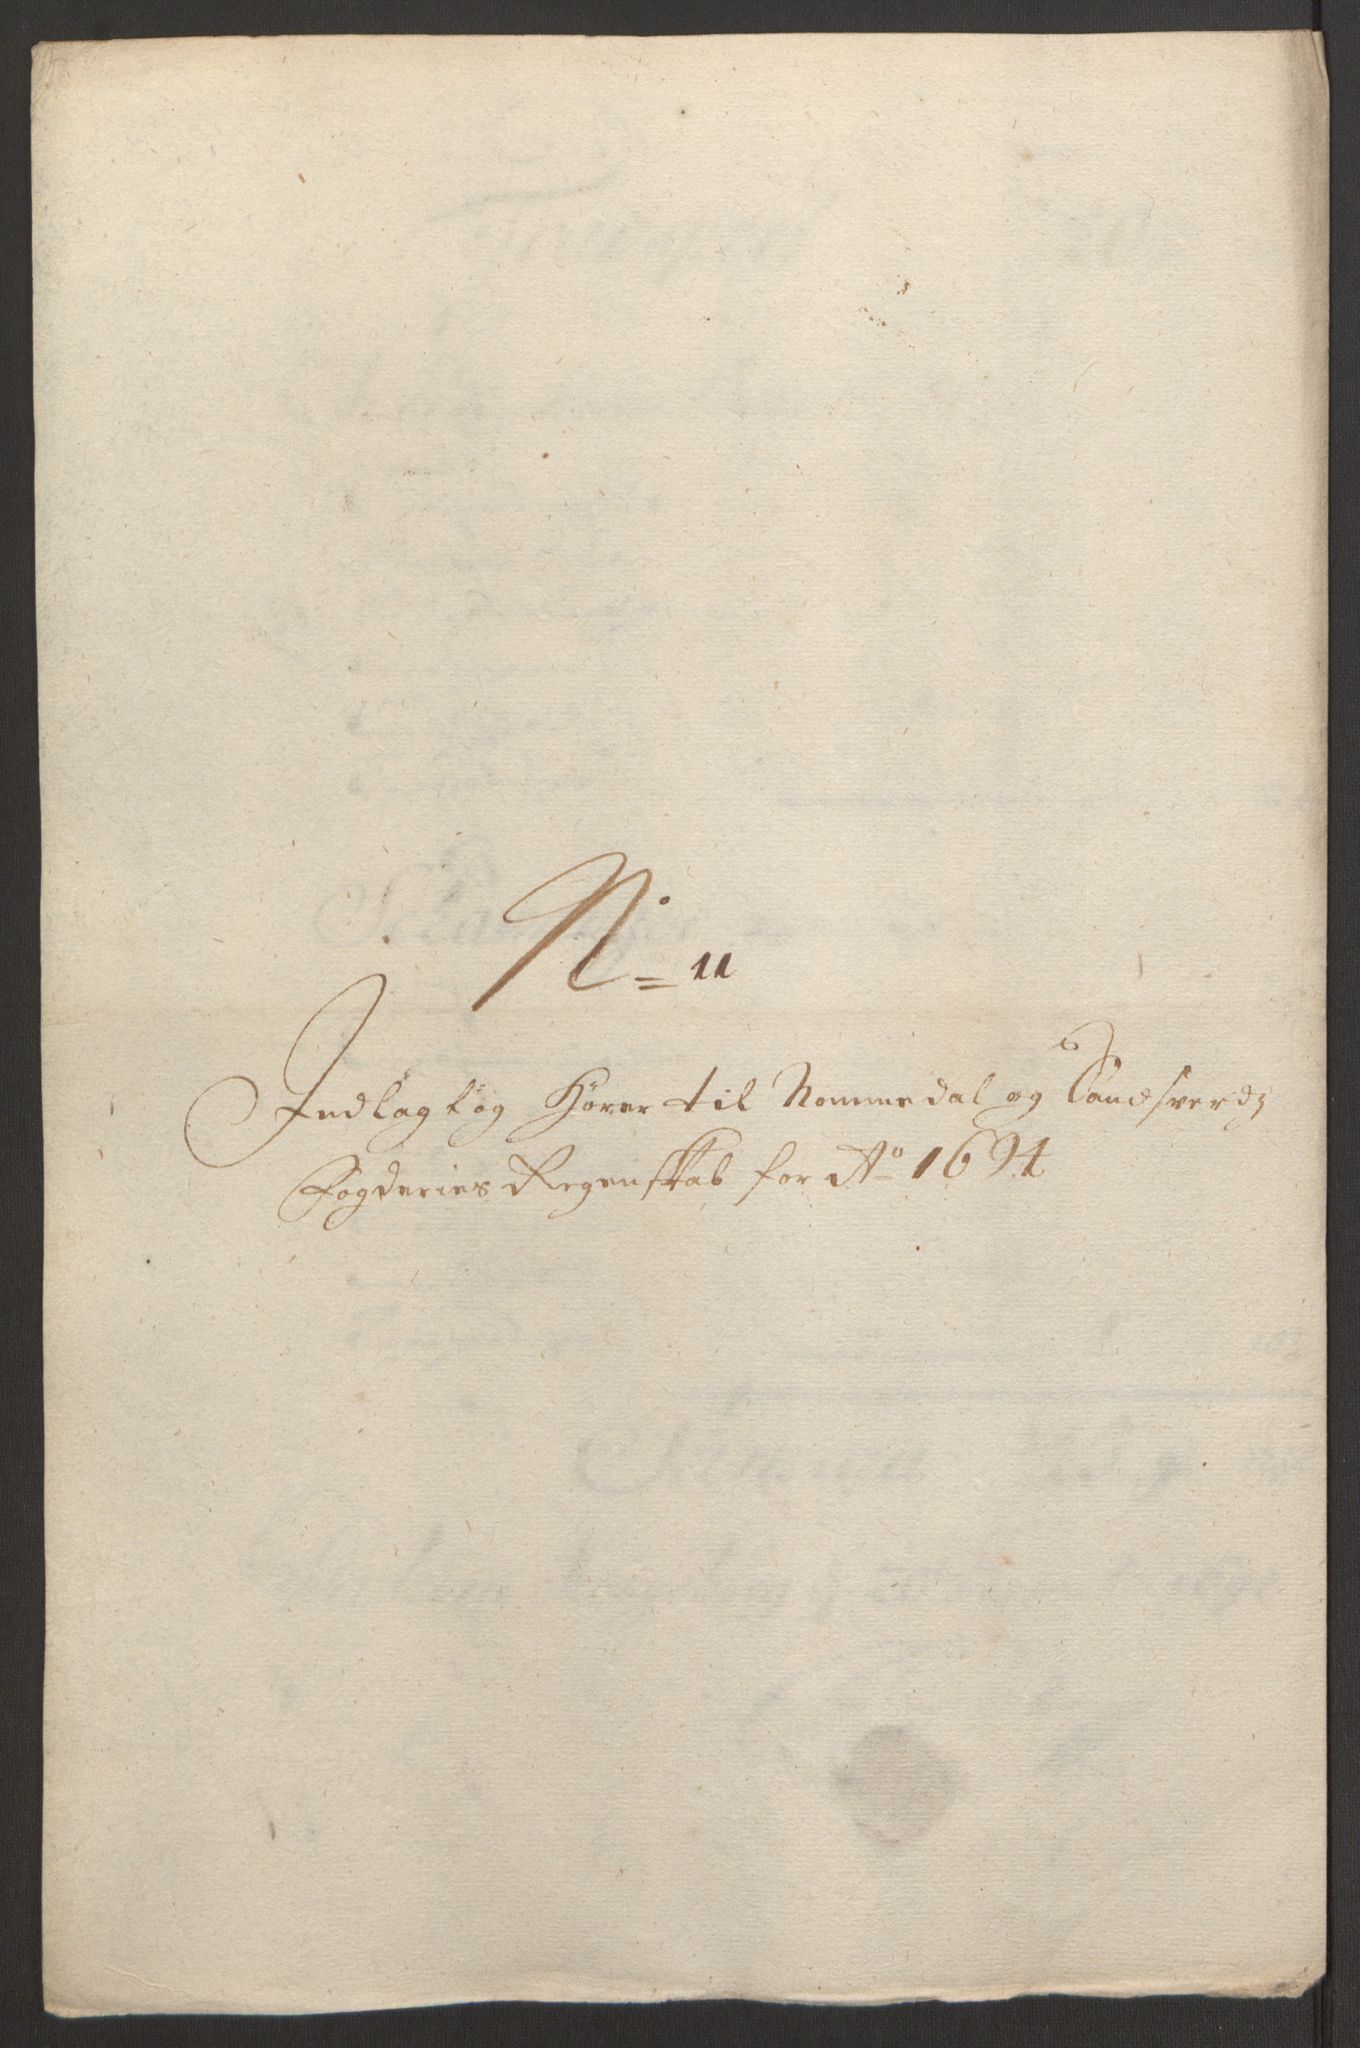 No = 11
Indlagt og Hörer til Nommedal og Sandsverdz
Fogderies Regenskab for Ao 1694